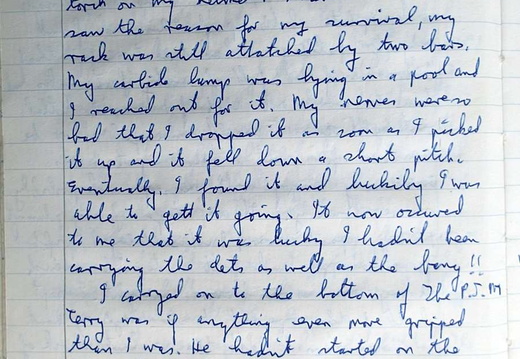 torch on my
saw the reason for my survival, my
rack was still attatched by two bars.
My carbide lamp was lying in a pool and
I reached out for it. My nerves were so
bad that I dropped it as soon as I picked
it up and it fell down a short pitch.
Eventually, I found it and luckily I was
able to gett it going. It now occured
to me that it was lucky I hadn't been
carrying the dets as well as the bang!!
I carryed on to the bottom of the
Terry was if anything even more gripped
than I was. He hadn't started on the